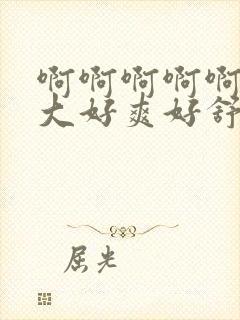 啊啊啊啊啊
大好爽好舒
屈光